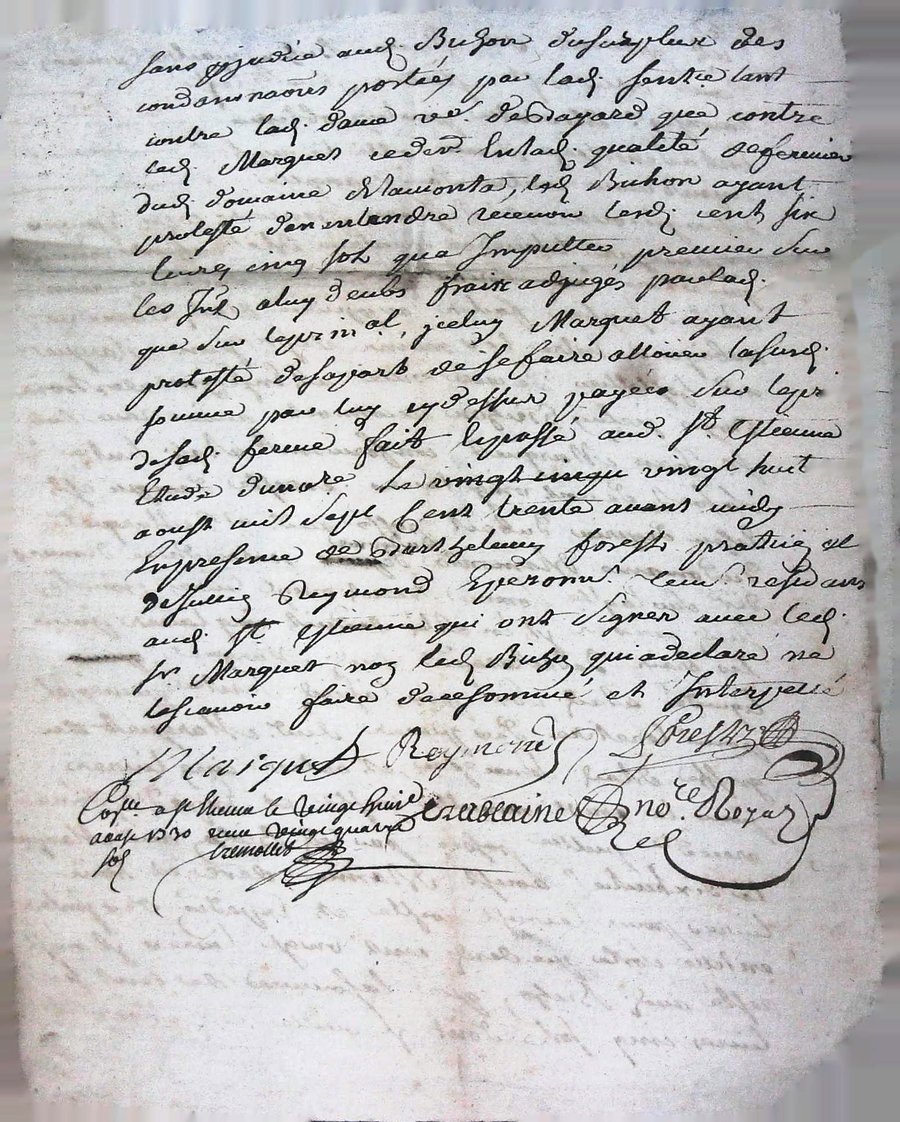 sans prjudice audi. Buhon dusurplus des
condamnaons portées par ladi. sentce tant
contre ladi. dame ve. de Bayard que contre
ledi. Marquet cedert. Entadi. qualité defermier
dudi. domaine ledi. Buhon ayant
protesté dentendre recevoir lesdi. cent six
livres cinq sols qua Imputter premier sur
les Jnts aluy deubs fraix adjugés parladi.
que sur leprinal, jceluy Marquet ayant
protesté desapart desefaire allouer lasusdi.
somme par luy cydessus payée sur leprix
desadi. ferme fait Lepassé audi. St. Estienne
Etude dunore. Le vingt cinqu vingt huit
aoust mil sept Cent trente avant midy
Enpresence de Barthelemy forest praticien et
de Reymond Eperonnr. resedans
audi. St. Estienne qui ont signer avec ledi.
sr Marquet non ledi. Buhon quiadeclaré ne
lescavoir faire decesommé et Interpellé
Marquet Reymond Forest
Colle. a st Etienne le vingt huit
aoust 1730 vingt quatre
sols
Tremollet
nore Royal